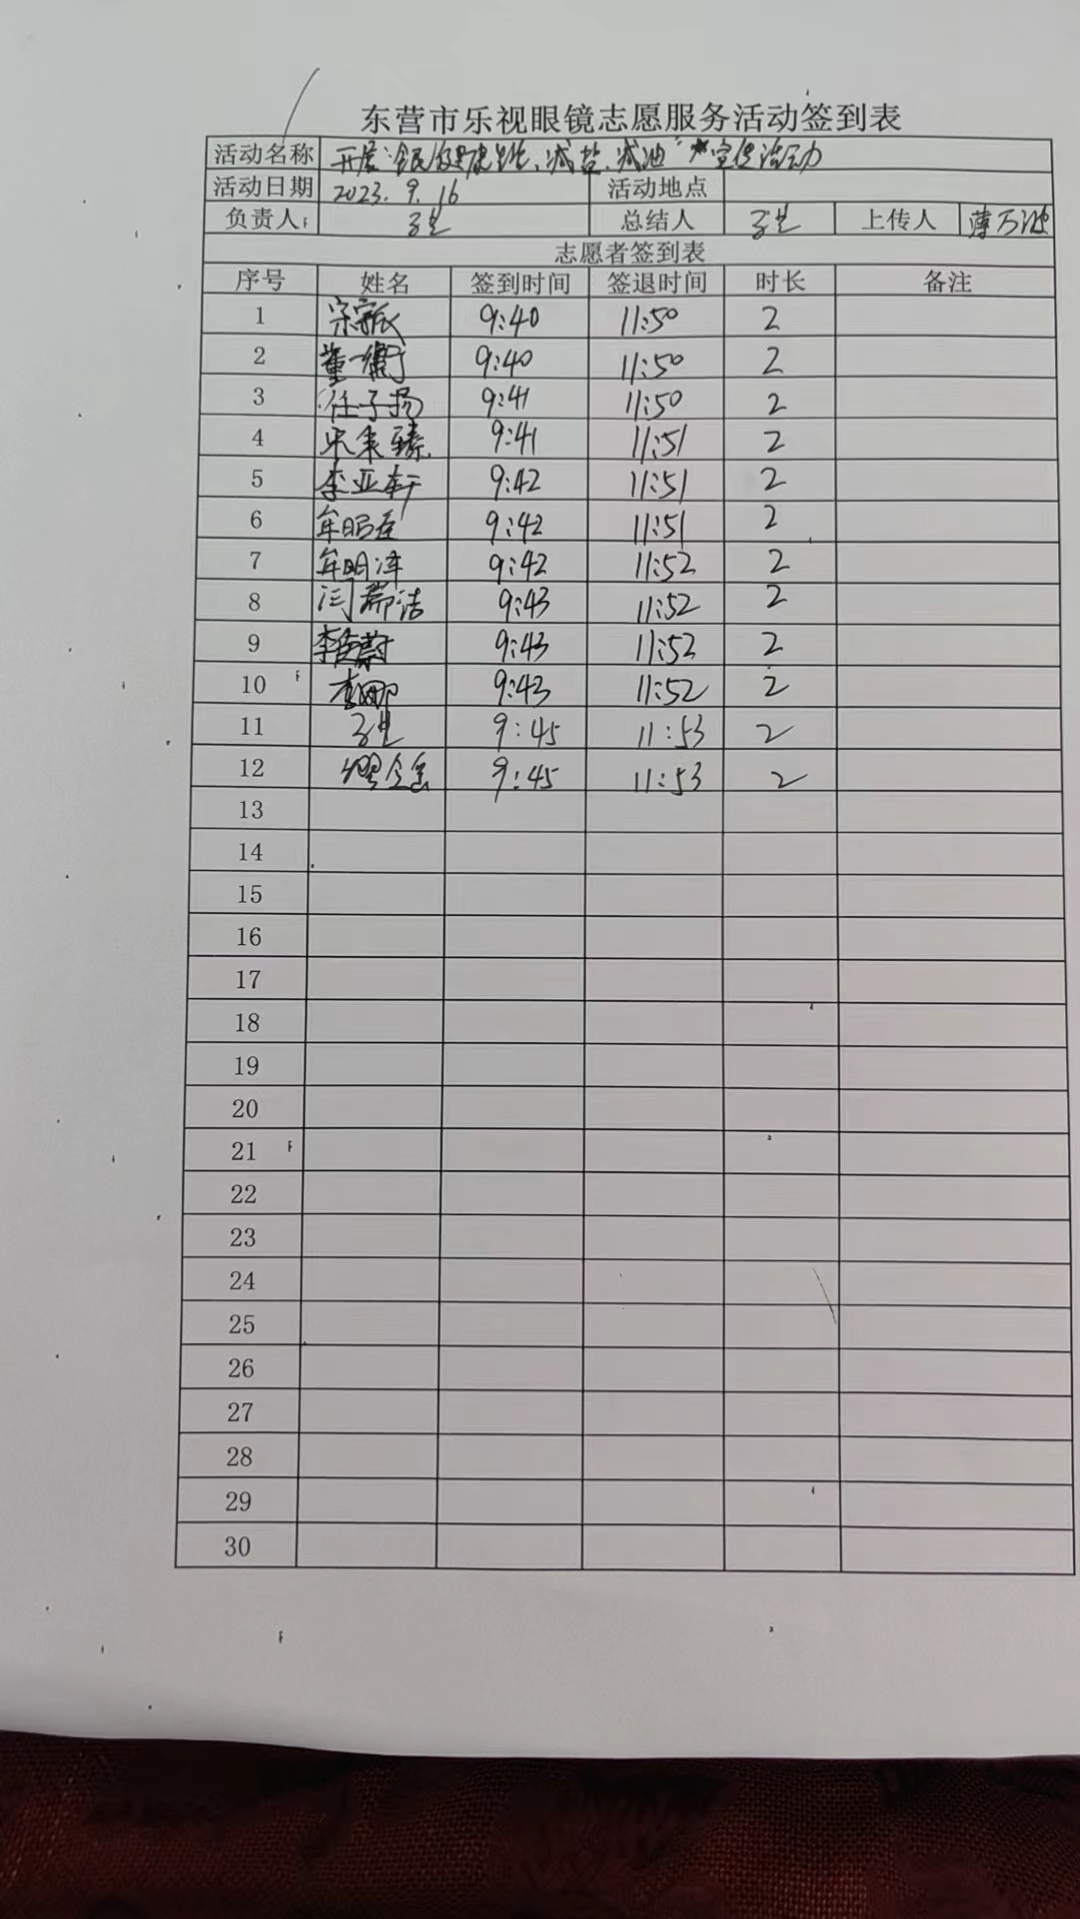 东营市乐视眼镜志愿服务活动签到表
活动名称 开展 全民健康 减盐、减油 宣传活动
活动日期 2023.9.16 活动地点
负责人: 总结人 上传人 薄万
志愿者签到表
序号 姓名 签到时间 签退时间 时长 备注
1 9:40 11:50 2
2 董一 9:40 11:50 2
3 任子扬 9:41 11:50 2
4 9:41 11:51 2
5 李亚轩 9:42 11:51 2
6 9:42 11:51 2
7 牟明泽 9:42 11:52 2
8 闫瑞洁 9:43 11:52 2
9 李 蔚 9:43 11:52 2
10 李娜 9:43 11:52 2
11 9:45 11:53 2
12 9:45 11:53 2
13
14
15
16
17
18
19
20
21
22
23
24
25
26
27
28
29
30